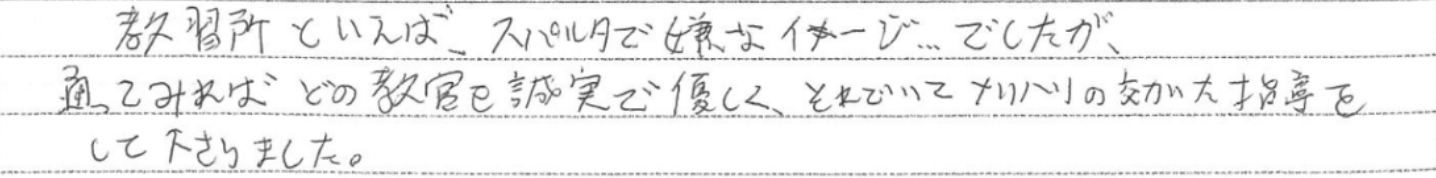 教習所といえば、スパルタで嫌なイメージ…でしたが、
通ってみればどの教官も誠実で優しく、それでいてメリハリの効いた指導を
して下さりました。